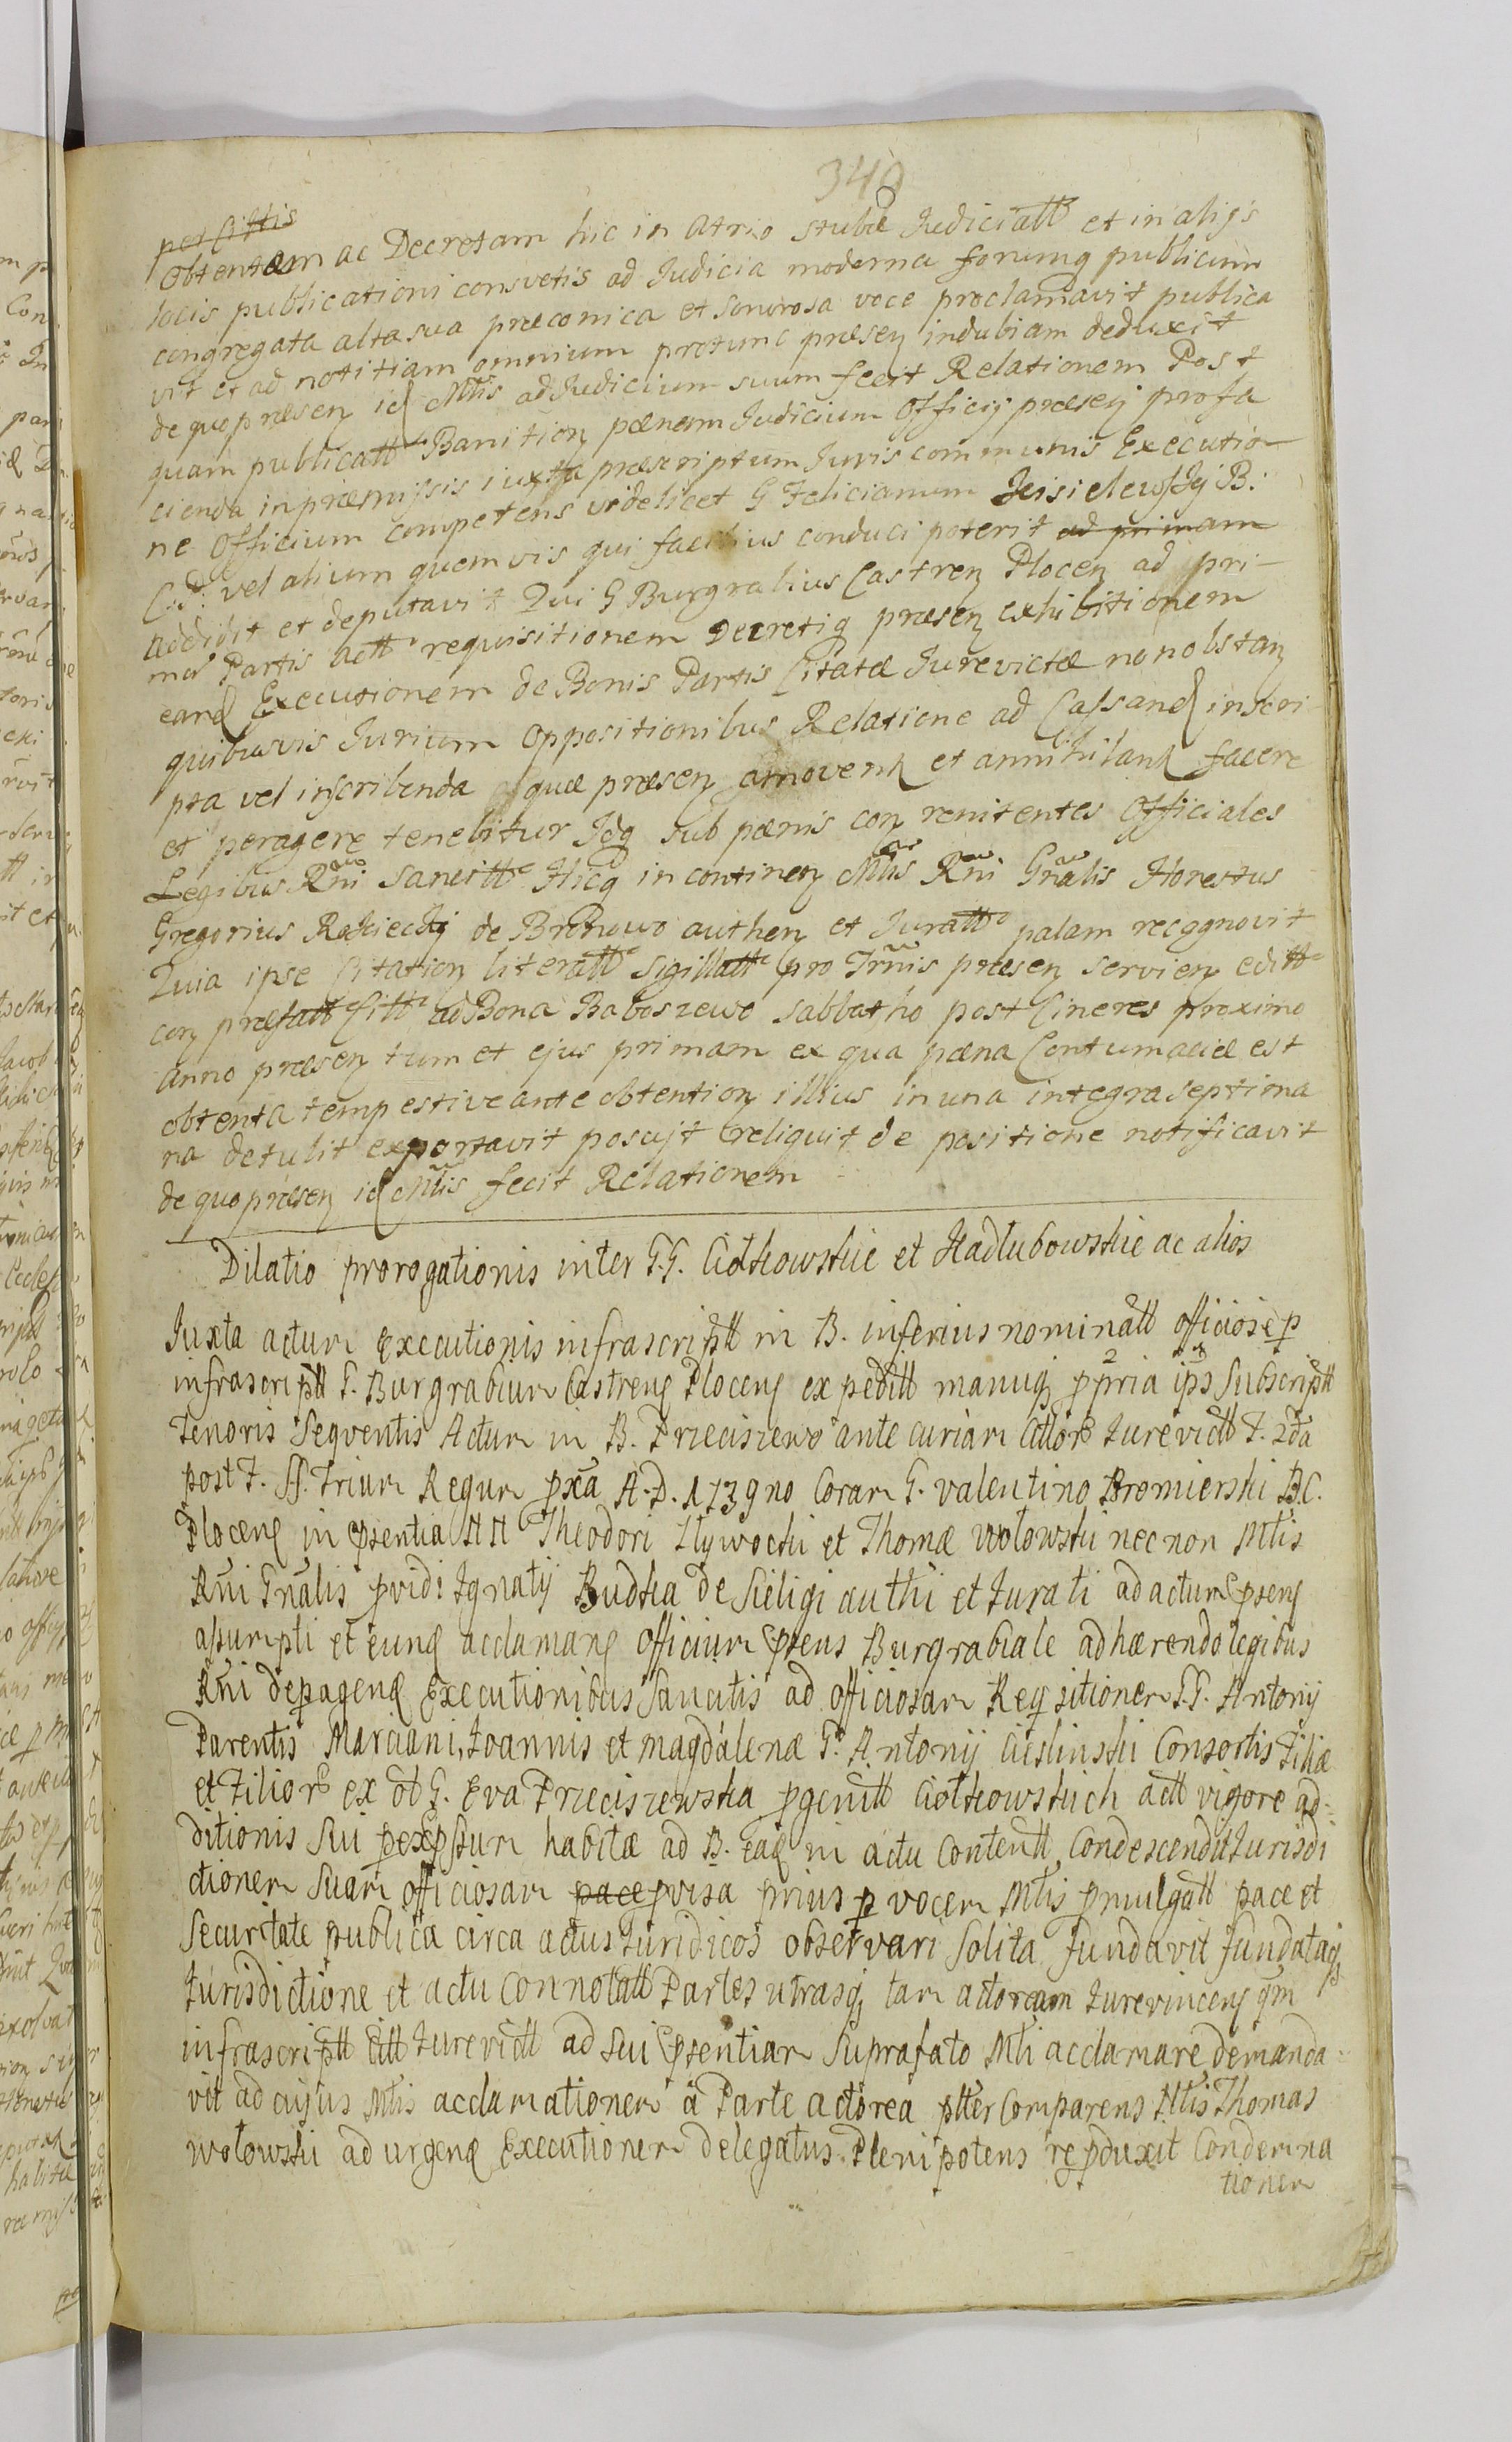 349
per Cittis
obtentam ac Decretam hic in Atrio stubæ Judiciatt et in alijs
locis publicationi consvetis ad Judicia moderna forumq publicum
congregata alta sua præconica et sonorosa voce proclamavit publica
vit et ad notitiam omnium protunc præsen indubiam deduxit
de quo præsen id Mtis ad Judicium suum fecit Relationem Post
quam publicatt Banition pænam Judicium Officij præsen profa
cienda in præmissis iuxta præscriptum Juris communis Executio
ne Officium competens videlicet G Felicianum Jeisielewskj B:
C:P: vel alium quemvis qui facilius conduci poterit ad primam
addidit et deputavit Qui G Burgrabius Castren Plocen ad pri-
mā Partis actt requisitionem Decretiq præsen exhibitionem
eand Executionem de Bonis Partis Citatæ Jurevictæ nonobstan
quibusvis Jurium Oppositionibus Relatione ad Cassand inscri
pta vel inscribenda quæ præsen amovent et annihilant facere
et peragere tenebitur Idq sub pænis con renitentes Officiales
Legibus Rni sancitt Hicq in continen Mtis Rni Gnalis Honestus
Gregorius Rokickj de Brochowo authen et Juratt palam recognovit
Quia ipse Citation literatt sigillatt pro Trnis præsen servien editt
con præfatt Citt ad Bona Baboszewo sabbatho post Cineres proximo
anno præsen tum et ejus primam ex qua pæna Contumaciæ est
obtenta tempestive ante obtention illius in una integra septima
na detulit exportavit posujt reliquit de positione notificavit
de quo præsen id Mtis fecit Relationem
Dilatio prorogationis inter G.G. Ciołkowskie et Nadłubowskie ac alios
Juxta actum Executionis infrascriptt in B. inferius nominatt officiose p
infrascriptt G. Burgrabium Castren Plocen expeditt manuq ppria ips Subscriptt
Tenoris Seqventis Actum in B. Przeciszewo ante curiam Cittor Jurevictt F. 2da
post F. SS. Trium Regum pxa A.D. 1739no Coram G. valentino Bromierski B.C.
Plocen in psentia NN Theodori Zływocki et Thomæ Wołowski necnon Mtis
Rni Gnalis pvidi Ignatij Budka de Sieligi authi et Jurati ad actum psen
assumpti et eund acclaman officium psens Burgrabiale adhærendo legibus
Rni depagend Executionibus Sancitis ad officiosam Reqsitionem G.G. Antonij
Parentis Marciani, Joannis et magdalenæ G. Antonij Cieslinski Consortis Filiæ
et Filior ex ot G. Eva Przeciszewska pgenitt Ciołkowskich actt vigore ad-
ditionis Sui pexpssum habitæ ad B. eaq in actu Contentt Condescendit Jurisdi
ctionem Suam officiosam pace pvisa prius p vocem Mtis pmulgatt pace et
Securitate publica circa actus Juridicos observari Solita Fundavit Fundataq
Jurisdictione et actu Connotatt Partes utrasq tam actoream Jurevincen qm
infrascriptt Citt Jurevictt ad Sui psentiam Suprafato Mti acclamare demanda-
vit ad cujus Mtis acclamationem à Parte actorea ptter Comparens Nttis Thomas
Wołowski ad urgend Executionem delegatus Plenipotens repduxit Condemna
tionem